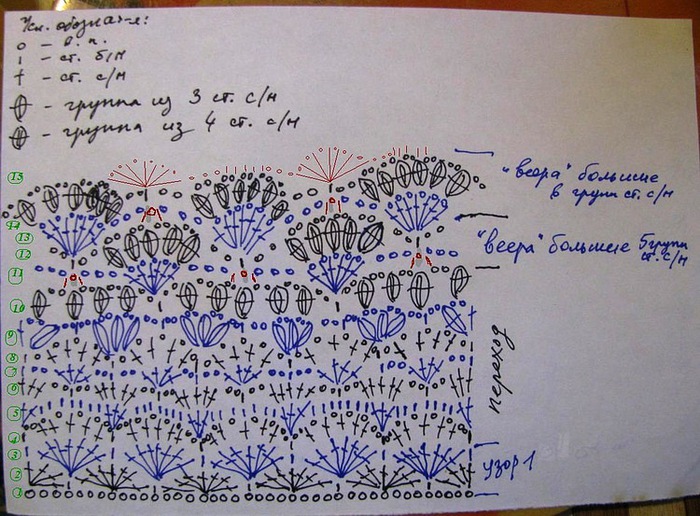 Усл. обознач-я:
о - в. п.
ı - ст. б/н
† - ст. с/н
- группа из 3 ст. с/н
- группа из 4 ст. с/н
"веера" большие
в групп ст. с/н
"веера" большие 5групп
ст. с/н
переход
узор 1
15
14
13
12
11
10
9
8
7
6
5
4
3
2
1